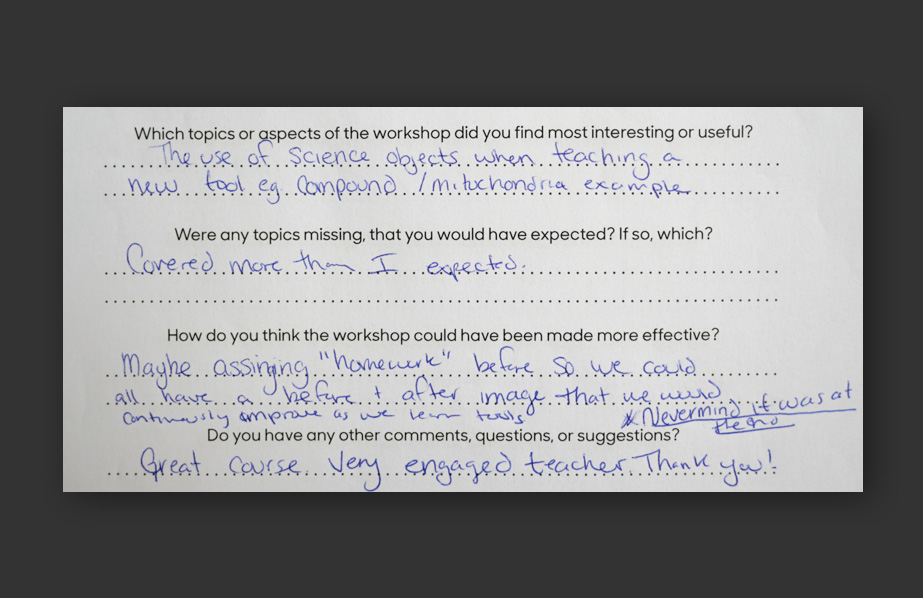 Which topics or aspects of the workshop did you find most interesting or useful?
The use of Science objects when teaching a
new tool eg. Compound / mitochondria example
Were any topics missing, that you would have expected? If so, which?
Covered more than I expected.
How do you think the workshop could have been made more effective?
Maybe assinging "homework" before so we could
all have a before + after image that we would
continuously improve as we learn tools.
* Nevermind it was at
the end
Do you have any other comments, questions, or suggestions?
Great course. Very engaged teacher. Thank you!